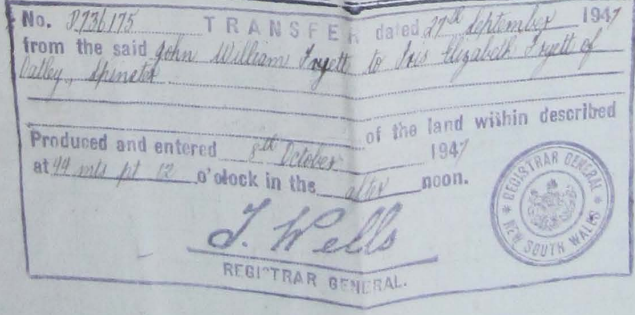 No. D736175 TRANSFER dated 27th September 1947
from the said John William Tryett to Iris Elizabeth Tryett of
Oatley, Spinster
of the land within described
Produced and entered 8th October 1947
at 44 mts pt 12 o'clock in the after noon.
T. Wells
REGISTRAR GENERAL.
REGISTRAR GENERAL
NEW SOUTH WALES